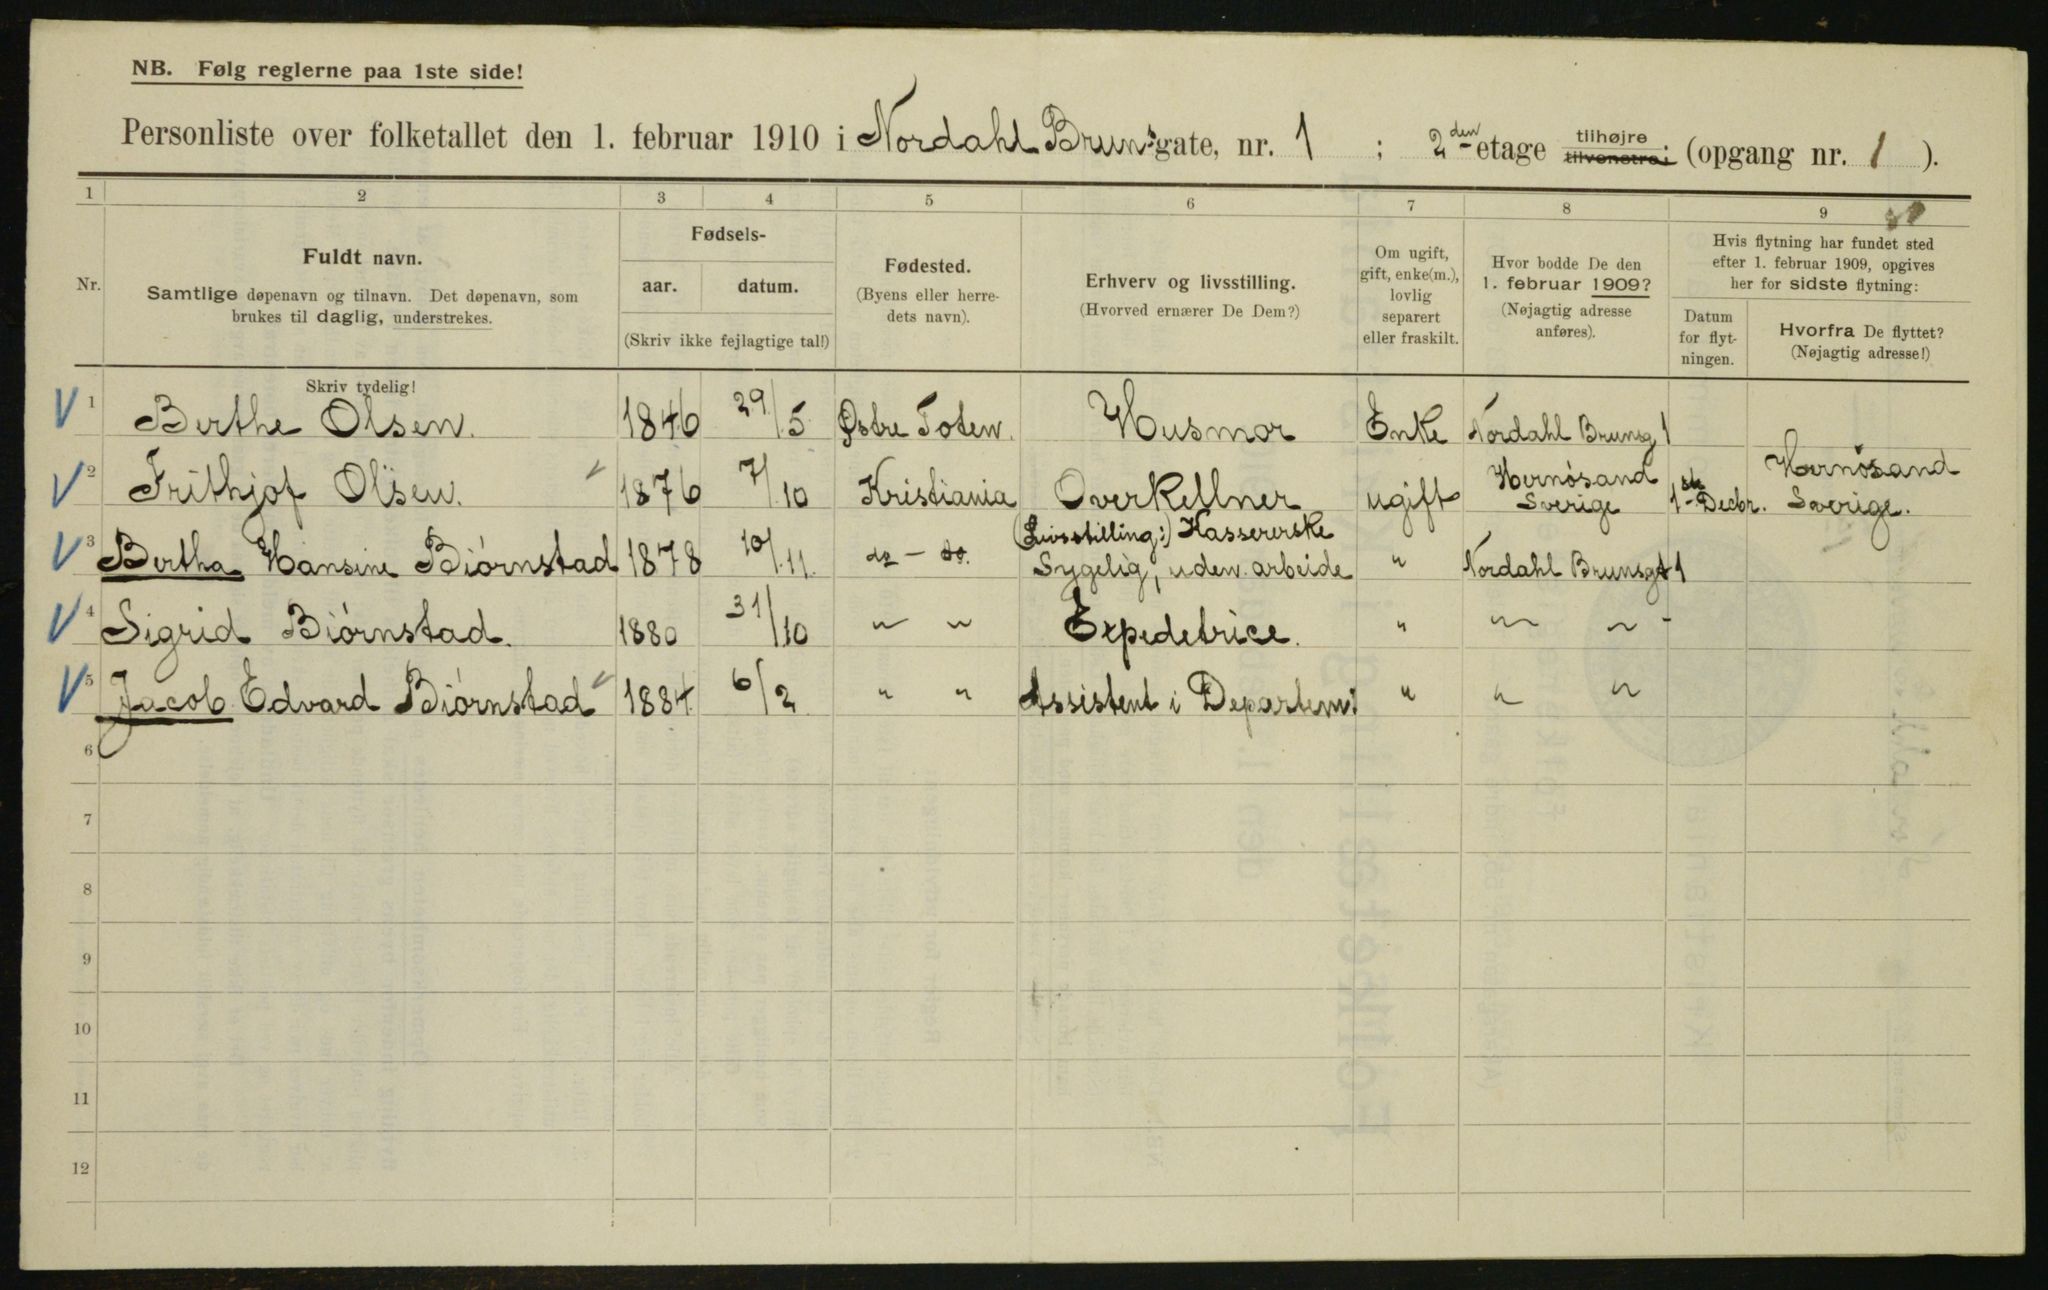 NB. Følg reglerne paa 1ste side!
Personliste over folketallet den 1. februar 1910 i Nordahl Bruns gate, nr. 1 ; 2den etage tilhøjre tilvenstre; (opgang nr. 1 ).
1 2 3 4 5 6 7 8 9
Nr.
Fuldt navn.
Samtlige døpenavn og tilnavn. Det døpenavn, som
brukes til daglig, understrekes.
Skriv tydelig!
Fødsels-
aar. datum.
(Skriv ikke fejlagtige tal!)
Fødested.
(Byens eller herre-
dets navn).
Erhverv og livsstilling.
(Hvorved ernærer De Dem?)
Om ugift,
gift, enke(m.),
lovlig
separert
eller fraskilt.
Hvor bodde De den
1. februar 1909?
(Nøjagtig adresse
anføres).
Hvis flytning har fundet sted
efter 1. februar 1909, opgives
her for sidste flytning:
Datum
for flyt-
ningen.
Hvorfra De flyttet?
(Nøjagtig adresse!)
V 1 Berthe Olsen. 1846 29/5 Østre Toten. Husmor Enke Nordahl Brunsg 1
V 2 Frithjof Olsen. 1876 7/10 Kristiania Overkellner ugift Hernösand Sverige 1ste Decbr. Hernösand Sverige.
V 3 Bertha Hansine Biórnstad 1878 10/11. do - do. (Livsstilling:) Kassererske
Sygelig, uden arbeide " Nordahl Brunsgt 1
V 4 Sigrid Biórnstad. 1880 31/10 " " Expedetrice. " " " -
V 5 Jacob Edvard Biórnstad 1884 6/2 " " Assistent i Departem: " " "
6
7
8
9
10
11
12